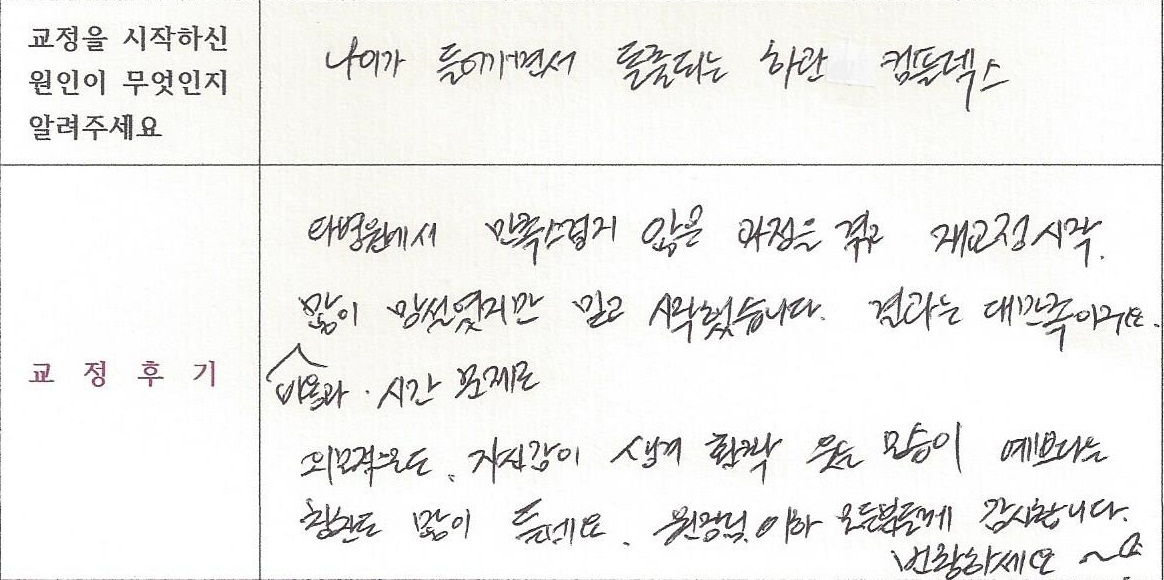 교정을 시작하신
원인이 무엇인지
알려주세요
나이가 들어가면서 돌출되는 하관 컴플렉스
교 정 후 기
타병원에서 만족스럽지 않은 과정을 겪고 재교정 시작.
많이 망설였지만 믿고 시작했습니다. 결과는 대만족이구요.
비용과 시간 문제로
외모적으로도 자신감이 생겨 활짝 웃는 모습이 예쁘다는
칭찬도 많이 듣네요. 원장님 이하 모든분들께 감사합니다.
번창하세요 ~